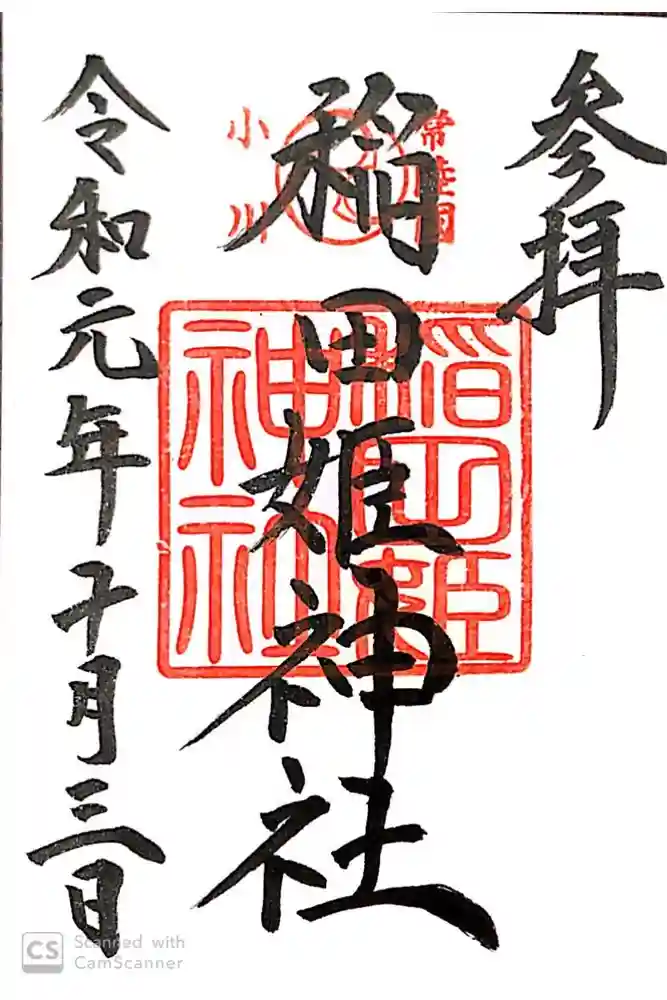 参拝
常陸国
小川
稲田姫神社
稲田姫
神社
令和元年十月三日
CS Scanned with
CamScanner